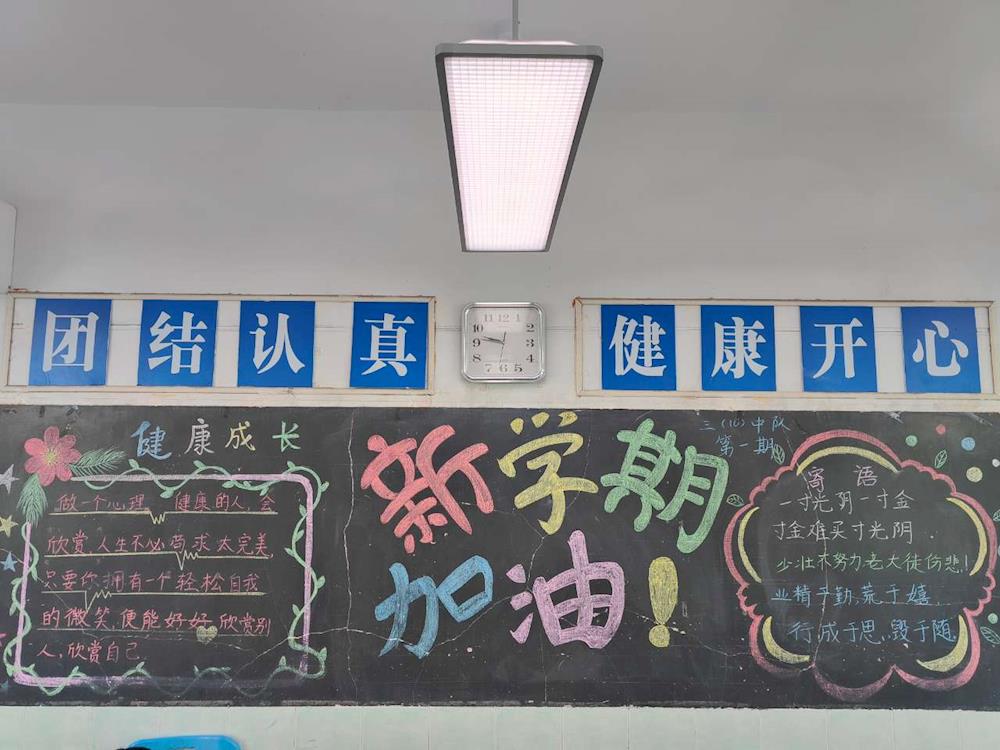 团结认真
健康开心
11 12 1
10 2
9 3
8 4
7 6 5
健康成长
做一个心理 健康的人,会
欣赏人生不必苛求太完美,
只要你拥有一个轻松自我
的微笑,便能好好欣赏别
人,欣赏自己
新学期
加油!
三(16)中队
第一期
寄语
一寸光阴一寸金
寸金难买寸光阴.
少壮不努力老大徒伤悲!
业精于勤,荒于嬉.
行成于思,毁于随.